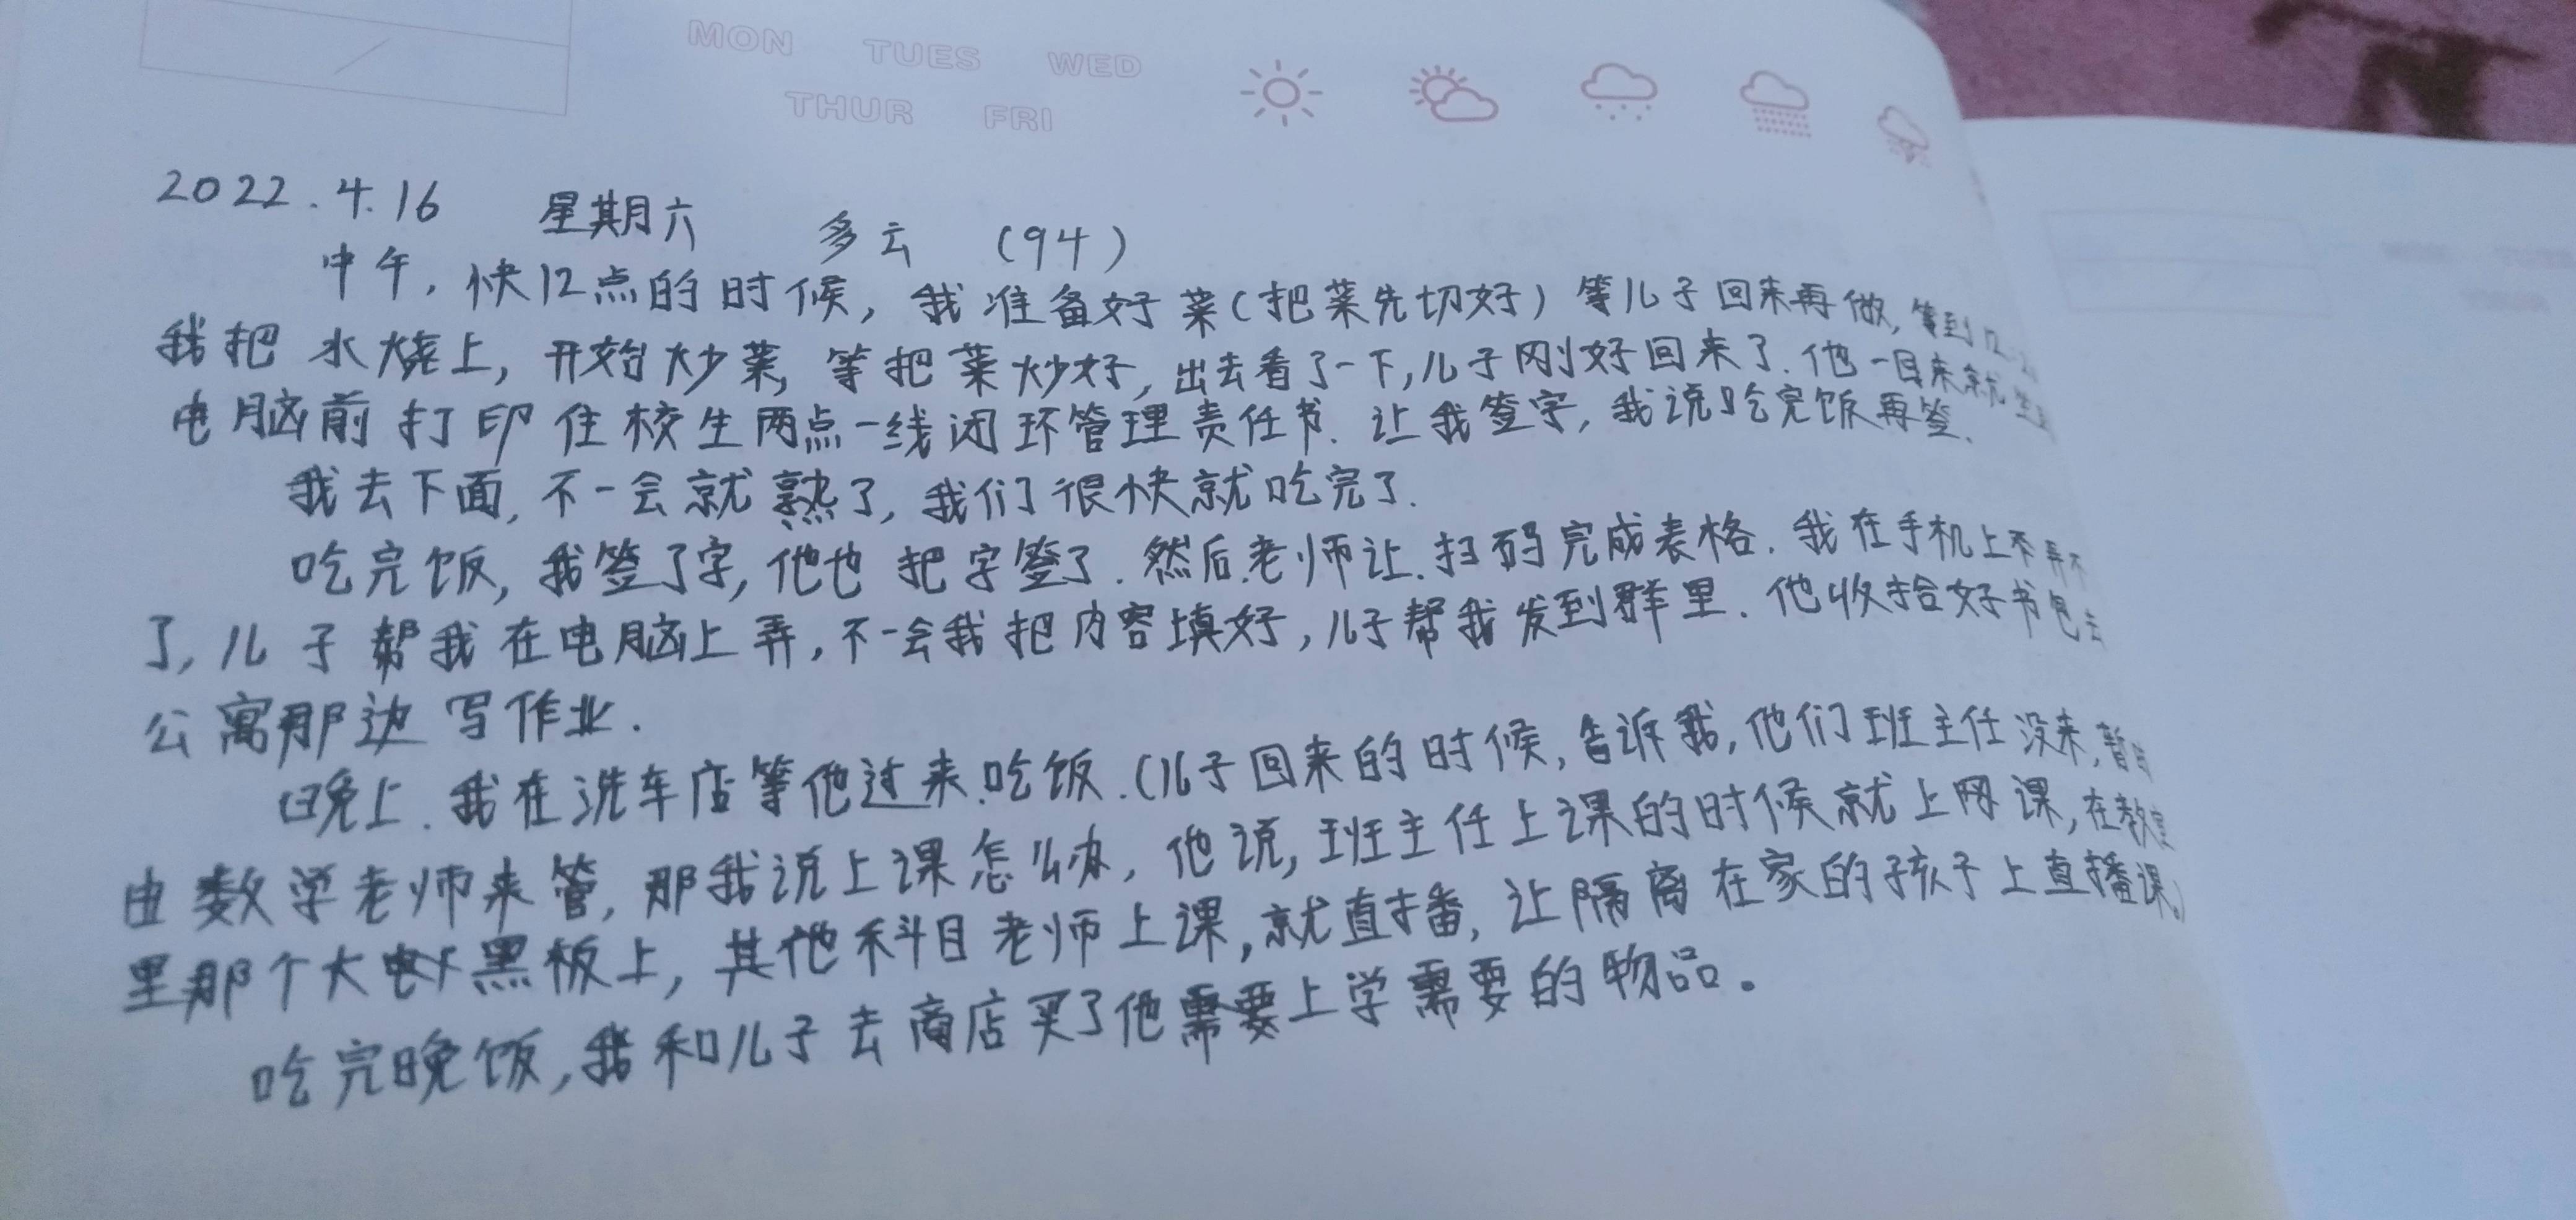 MON TUES WED
THUR FRI
2022.4.16 星期六 多云 (94)
中午,快12点的时候,我准备好菜(把菜先切好)等儿子回来再做,等到12
我把水烧上,开始炒菜,等把菜炒好,出去看了一下,儿子刚好回来了.他一回来就
电脑前打印住校生两点一线闭环管理责任书.让我签字,我说吃完饭再签.
我去下面,不一会就熟了,我们很快就吃完了.
吃完饭,我签了字,他也把字签了.然后.老师让.扫码完成表格.我在手机上不弄不
了,儿子帮我在电脑上弄,不一会我把内容填好,儿子帮我发到群里.他收拾好书包去
公寓那边写作业.
晚上.我在洗车店等他过来.吃饭.(儿子回来的时候,告诉我,他们班主任没来,暂时
由数学老师来管,那我说上课怎么办,他说,班主任上课的时候就上网课,在教室
里那个大黑板上,其他科目老师上课,就直播,让隔离在家的孩子上直播课。)
吃完晚饭,我和儿子去商店买了他需要上学需要的物品。